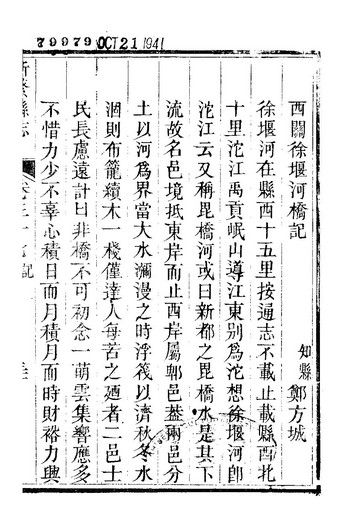 79979 OCT 21 1941
西關徐堰河橋記
知縣鄭方城
徐堰河在縣西十五里按通志不載止載縣西北
十里沱江禹貢岷山導江東別爲沱想徐堰河卽
沱江云又稱毘橋河或曰新都之毘橋水是其下
流故名邑境抵東岸而止西岸屬郫邑葢兩邑分
土以河爲界當大水瀰漫之時浮筏以濟秋冬水
涸則布籠續木一棧僅達人每苦之廼者二邑士
民長慮遠計曰非橋不可初念一萌雲集響應多
不惜力少不辜心積日而月積月而時財裕力興
新繁縣志
卷三十七記